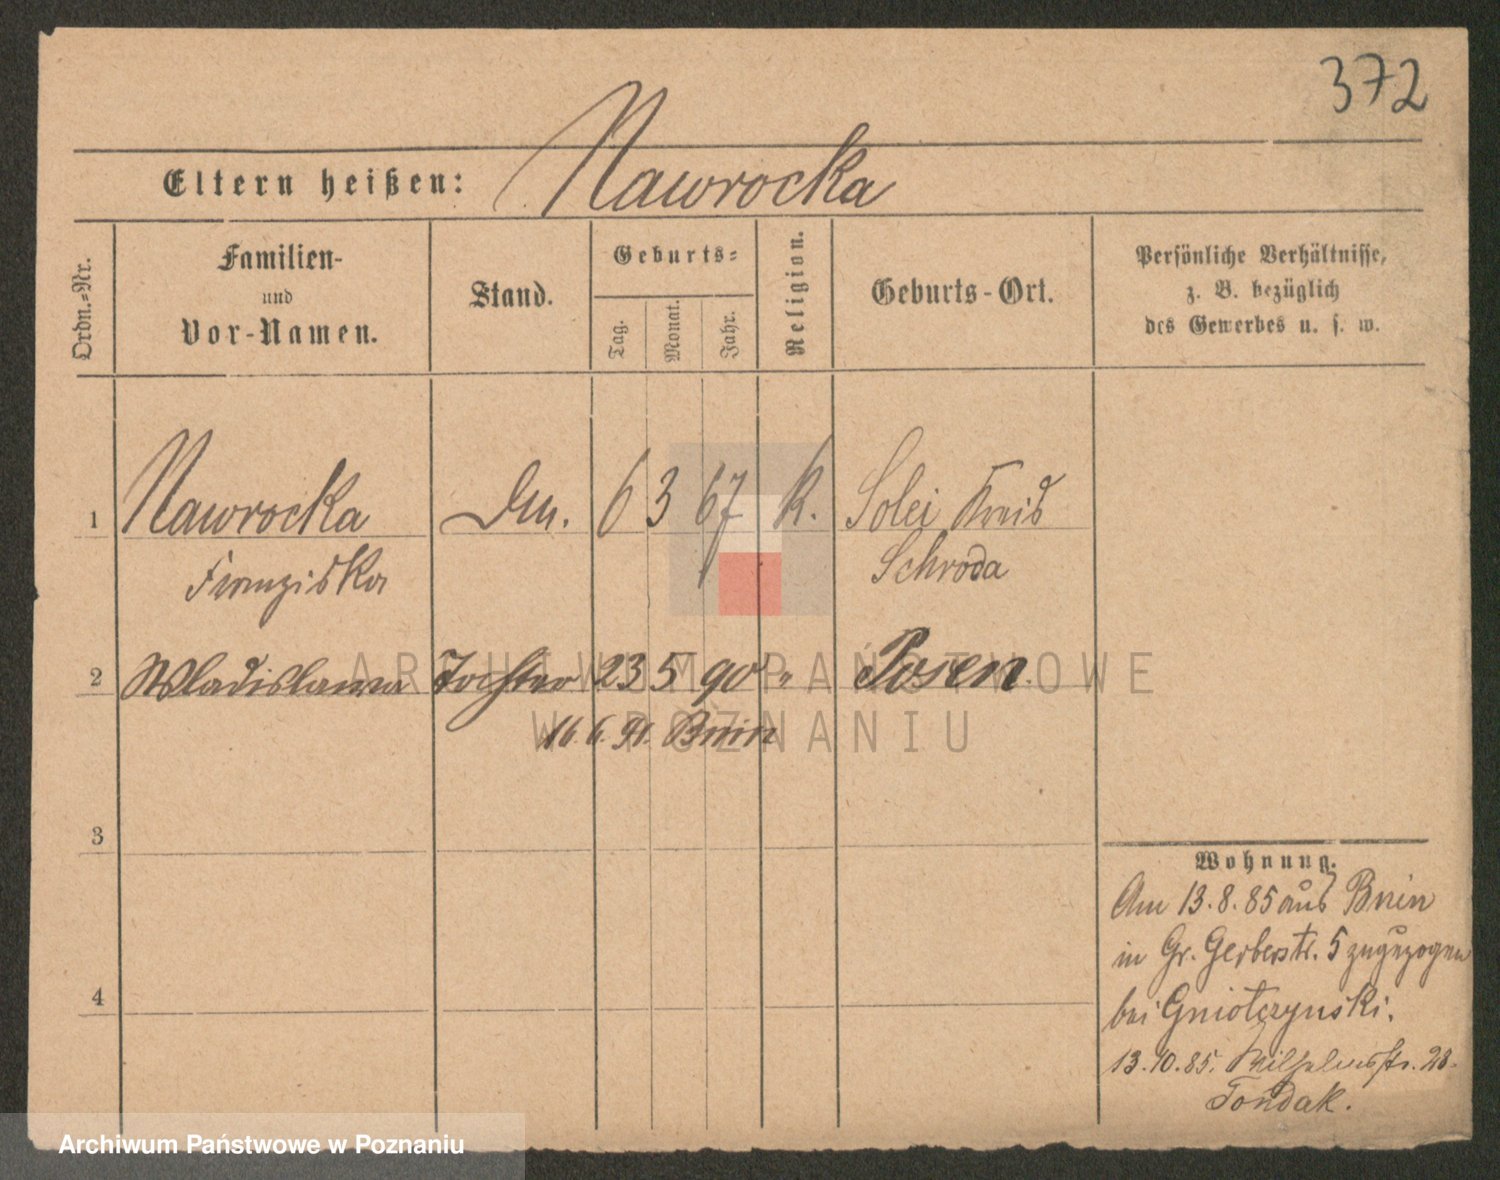 372
Eltern heißen: Nawrocka
Ordn.-Nr.
Familien-
und
Vor-Namen.
Stand.
Geburts-
Tag.
Monat.
Jahr.
Religion.
Geburts-Ort.
Persönliche Verhältnisse,
z. B. bezüglich
des Gewerbes u. s. w.
1 Nawrocka 6 3 67 k. Solei Kreis
Franziska Schroda
2 Wladislawa Tochter 23 5 90 " Posen.
16. 6. 91. Bnin
3
4
Wohnung.
Am 13.8.85 aus Bnin
in Gr. Gerberstr. 5 zugezogen
bei Gniotczynski.
13.10.85. Wilhelmsstr. 28.
Tondak.
ARCHIWUM PAŃSTWOWE
W POZNANIU
Archiwum Państwowe w Poznaniu